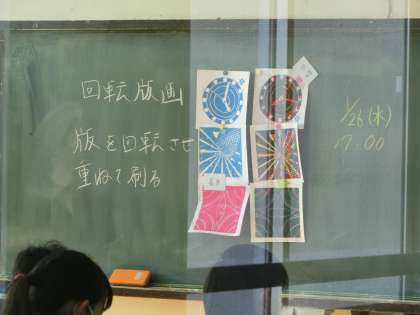 回転版画
版を回転させ
重ねて刷る
1/26(水)
17:00